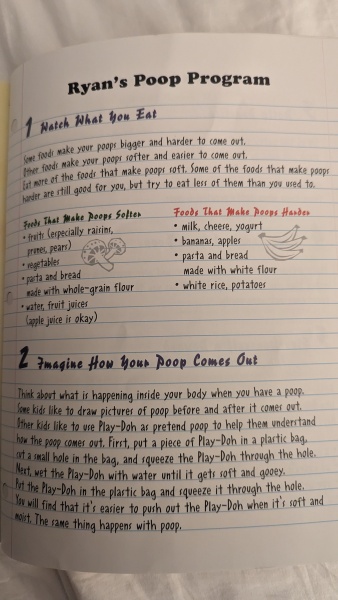 Ryan's Poop Program
1 Watch What You Eat
Some foods make your poops bigger and harder to come out.
Other foods make your poops softer and easier to come out.
Eat more of the foods that make poops soft. Some of the foods that make poops
harder are still good for you, but try to eat less of them than you used to.
Foods That Make Poops Softer
• fruits (especially raisins,
prunes, pears)
• vegetables
• pasta and bread
made with whole-grain flour
• water, fruit juices
(apple juice is okay)
Foods That Make Poops Harder
• milk, cheese, yogurt
• bananas, apples
• pasta and bread
made with white flour
• white rice, potatoes
2 Imagine How Your Poop Comes Out
Think about what is happening inside your body when you have a poop.
Some kids like to draw pictures of poop before and after it comes out.
Other kids like to use Play-Doh as pretend poop to help them understand
how the poop comes out. First, put a piece of Play-Doh in a plastic bag,
cut a small hole in the bag, and squeeze the Play-Doh through the hole.
Next, wet the Play-Doh with water until it gets soft and gooey.
Put the Play-Doh in the plastic bag and squeeze it through the hole.
You will find that it's easier to push out the Play-Doh when it's soft and
moist. The same thing happens with poop.